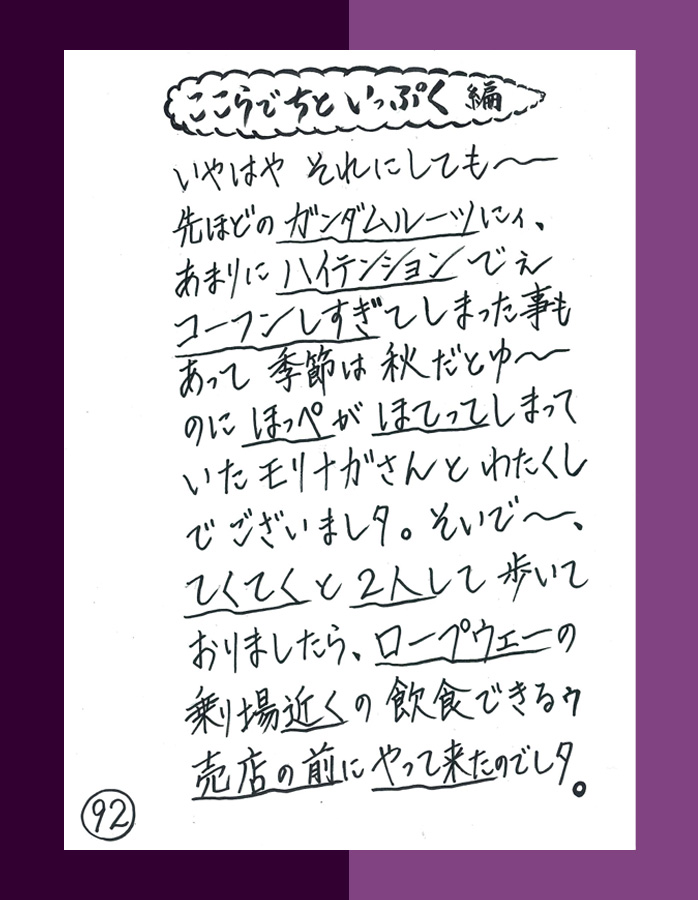 ここらでちといっぷく編
いやはや それにしても〜
先ほどの ガンダムルーツにィ、
あまりに ハイテンションでぇ
コーフンしすぎてしまった事も
あって 季節は 秋だとゆ〜
のに ほっぺが ほてってしまって
いた モリナガさんと わたくし
で ございましタ。そいで〜、
てくてくと 2人して 歩いて
おりましたら、ロープウェーの
乗り場近くの 飲食できるゥ
売店の前に やって来たのでしタ。
92